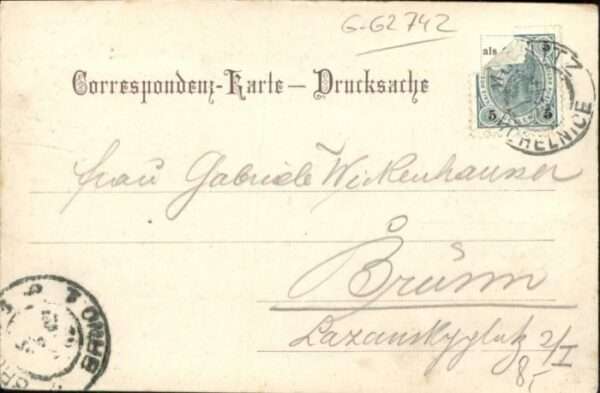 G-G2742
als
Correspondenz-Karte — Drucksache
5
5 5
CHELNICE
Frau Gabriele Wickenhauser
Brünn
Lazanskyplatz 2/I
8,-
BRNO